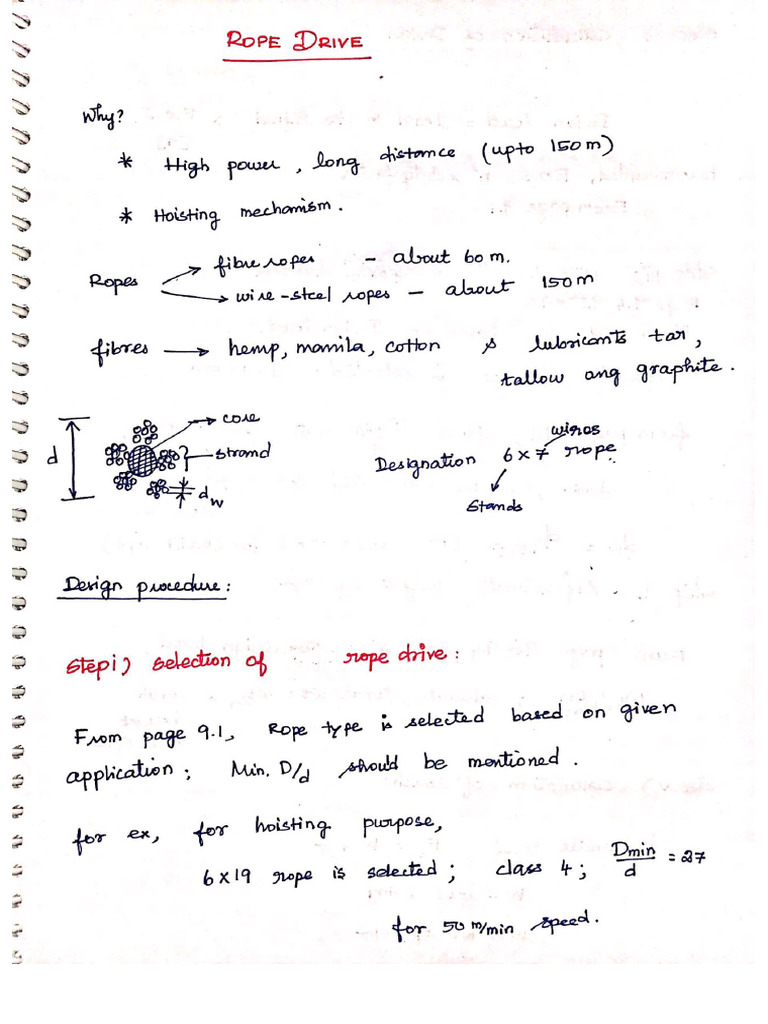 ROPE DRIVE
Why?
* High power, long distance (upto 150 m)
* Hoisting mechanism.
Ropes → fibre ropes – about 60 m.
→ wire-steel ropes – about 150 m
fibres → hemp, manila, cotton & lubricants tar,
tallow ang graphite.
core
strand
d
dw
wires
Designation 6 x 7 rope.
Stands
Design procedure:
Step i) selection of rope drive:
From page 9.1, Rope type is selected based on given
application; Min. D/d should be mentioned.
for ex, for hoisting purpose,
6 x 19 rope is selected; class 4; Dmin/d = 27
for 50 m/min speed.